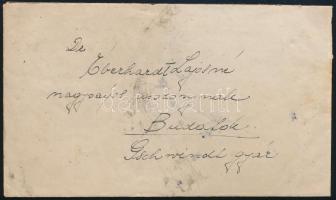 Dr
Eberhardt Lajosné
nagysás asszonynak
Budafok
Gschwindt gyár